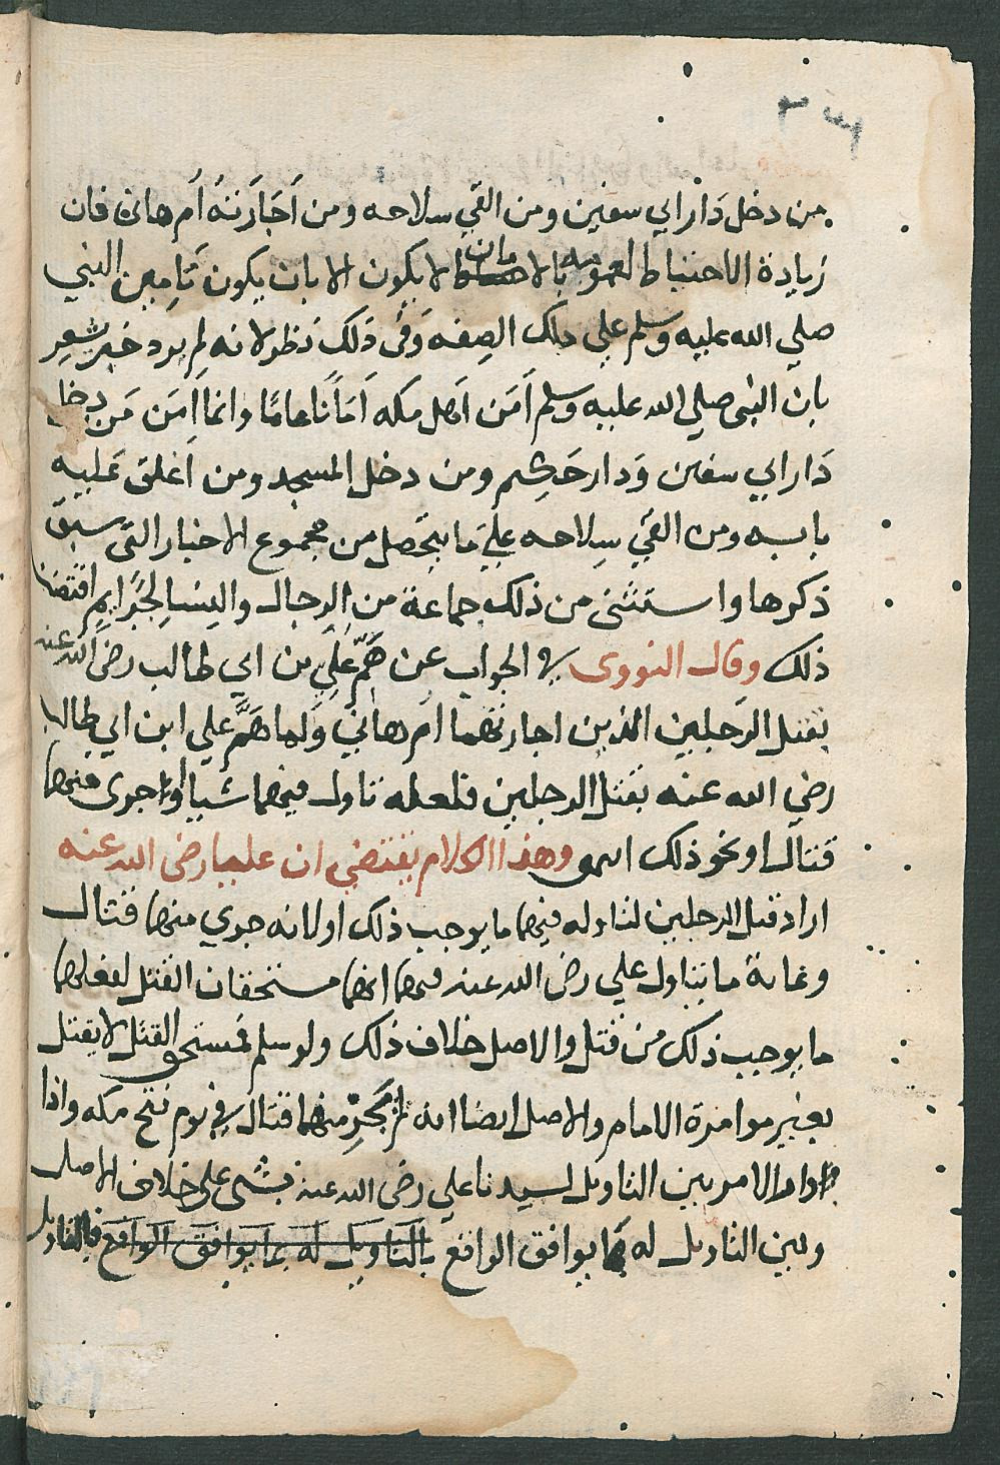 من دخل دَار ابي سفين ومن القي سلاحه ومن اَجَارَتْهُ اُم هانئ فان
زيادة الاحتياط لعمومه بالامان لا يكون الا بان يكون تَامِين النبي
صلي الله عليه وسلم علي تلك الصِفه وَفى ذَلك نظر لانه لم يرد خبر يشعر
بان النبى صلي الله عليه وسلم اَمَن اَهل مكه اَمَاناً عامًا وانما اَمَن مَن دخل
دَار ابي سفين وَدار حَكِيم ومن دخل المسجد ومن اَغلق عَليه
بابه ومن القي سِلاحه علي ما يتحَصل من مجموع الاخبار التى سبق
ذكرها واستثنى من ذلك جماعة من الرجال والنِسا لجَرَايم اقتضت
ذلك وقال النووى في الجواب عن هَمِّ علي بن ابي طالب رضى الله عنه
بقتل الرَجلين الذين اجارتهما ام هاني وَلما هَمَّ علي ابن ابي طالب
رضي الله عنه بقتل الرجلين فلعله تاول فيهما شيا او جرى منهما
قتال او نحو ذلك انتهى وهذا الكلام يقتضي ان عليا رضى الله عنه
اراد قتل الرجلين لتاوله فيهما ما يوجب ذلك اولانه جري منهما قتال
وغاية ما يتاول علي رضى الله عنه فيهما انهما مستحقان القتل لفعلهما
ما يوجب ذلك من قتل والاصل خلاف ذلك ولو سلم فمستحق القتل لا يقتل
بغير موامرة الامام والاصل ايضا انه لم يَجرِ منهما قتال في يوم فتح مكه واذا
دار الامر بين التاويل لسيدنا علي رضى الله عنه بشى على خلاف الاصل
وبين التاويل له بما يوافق الواقع بالتاويل له بما يوافق الواقع فالتاويل